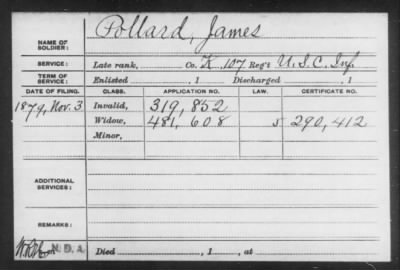 NAME OF SOLDIER: Pollard, James
SERVICE: Late rank, Co. K 107 Reg't U.S.C. Inf.
TERM OF SERVICE: Enlisted , 1 Discharged , 1
DATE OF FILING. CLASS. APPLICATION NO. LAW. CERTIFICATE NO.
1879, Nov. 3 Invalid, 319,852
Widow, 481,608 S 290,412
Minor,
ADDITIONAL SERVICES:
REMARKS:
N.D.A. Died , 1 , at